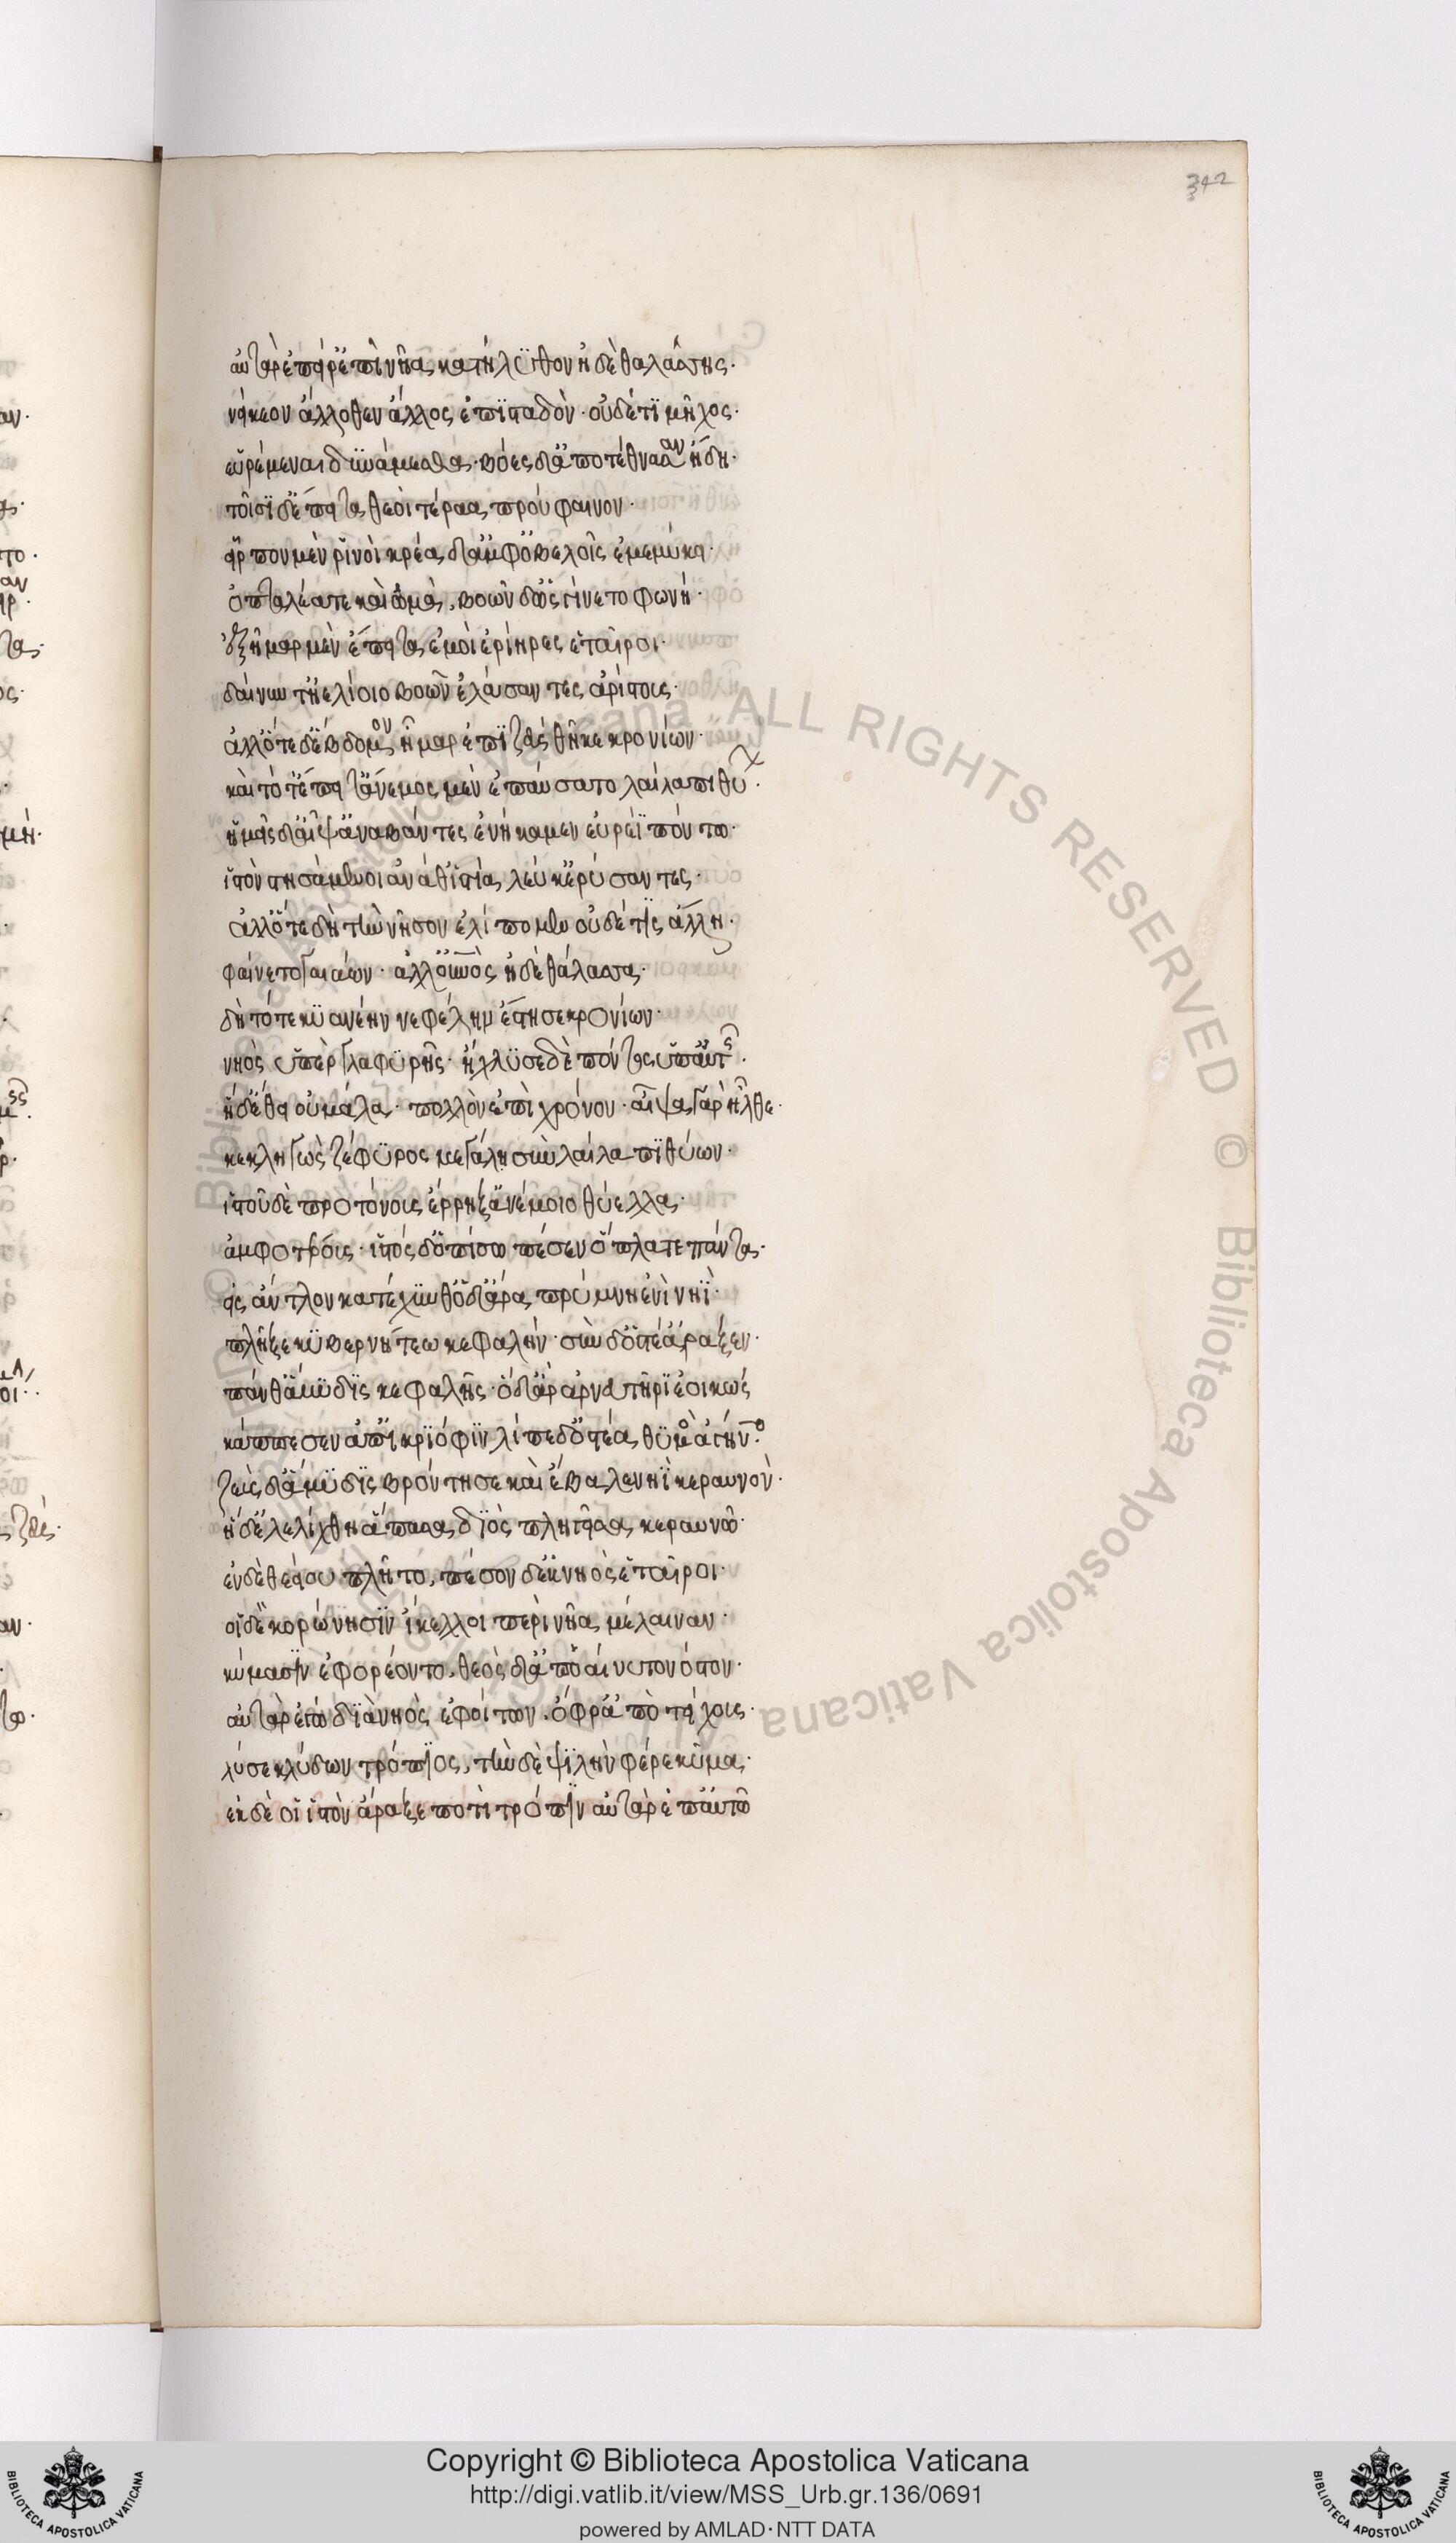 342
αὐτὰρ ἐπεί ῥ' ἐπὶ νῆα κατήλυθον ἠδὲ θαλάσσης·
νείκεον ἄλλοθεν ἄλλος ἐπισταδὸν· οὐδέ τι μῆχος·
εὑρέμεναι δυνάμεσθα· βόες δ' ἀποτέθνασαν ἤδη·
τοῖσι δ' ἔπειτα θεοὶ τέραα προύφαινον·
εἷρπον μὲν ῥινοὶ κρέα δ' ἀμφ' ὀβελοῖς ἐμεμύκει·
ὀπταλέα τε καὶ ὠμὰ, βοῶν δ' ὣς γίνετο φωνή·
ἑξῆμαρ μὲν ἔπειτα ἐμοὶ ἐρίηρες ἑταῖροι·
δαίνυντ' ἠελίοιο βοῶν ἐλάσαντες ἀρίστους·
ἀλλ' ὅτε δ' ἕβδομον ἦμαρ ἐπὶ ζεὺς θῆκε κρονίων·
καὶ τότ' ἔπειτ' ἄνεμος μὲν ἐπαύσατο λαίλαπι θύ·
ἡμεῖς δ' αἶψ' ἀναβάντες ἐνήκαμεν εὐρέϊ πόντω·
ἱστὸν στησάμενοι ἀνά θ' ἱστία λεύκ' ἐρύσαντες·
ἀλλ' ὅτε δὴ τὴν νῆσον ἐλίπομεν οὐδέ τις ἄλλη·
φαίνετο γαιάων· ἀλλ' οὐρανὸς ἠδὲ θάλασσα·
δὴ τότε κυανέην νεφέλην ἔστησε κρονίων·
νηὸς ὕπερ γλαφυρῆς· ἤχλυσε δὲ πόντος ὑπ' αὐτῆς·
ἡ δ' ἔθει οὐ μάλα· πολλὸν ἐπὶ χρόνον· αἶψα γὰρ ἦλθε·
κεκληγὼς ζέφυρος μεγάλη σὺν λαίλαπι θύων·
ἱστοῦ δὲ προτόνους ἔρρηξ' ἀνέμοιο θύελλα·
ἀμφοτέρους· ἱστὸς δ' ὀπίσω πέσεν ὅπλα τε πάντα·
εἰς ἄντλον κατέχυνθ' ὁ δ' ἄρα πρύμνη ἐνὶ νηῒ·
πλῆξε κυβερνήτεω κεφαλήν· σὺν δ' ὀστέ' ἄραξεν·
πάνθ' ἄμυδις κεφαλῆς· ὁ δ' ἄρ' ἀρνευτῆρι ἐοικώς
κάππεσεν ἀπ' ἰκριόφιν λίπε δ' ὀστέα θυμὸς ἀγήνο·
ζεὺς δ' ἄμυδις βρόντησε καὶ ἔμβαλε νηῒ κεραυνόν·
ἡ δ' ἐλελίχθη ἅπασα διὸς πληγεῖσα κεραυνῶ·
ἐν δὲ θεείου πλῆτο, πέσον δ' ἐκ νηὸς ἑταῖροι·
οἱ δὲ κορώνησιν ἴκελλοι περὶ νῆα μέλαιναν·
κύμασιν ἐφορέοντο, θεὸς δ' ἀποαίνυτο νόστον·
αὐτὰρ ἐγὼ διὰ νηὸς ἐφοίτων· ὄφρ' ἀπὸ τείχους·
λύσε κλύδων τρόπιος, τὴν δὲ ψιλὴν φέρε κῦμα·
ἐκ δέ οἱ ἱστὸν ἄραξε ποτὶ τρόπιν αὐτὰρ ἐπ' αὐτῶ
Copyright © Biblioteca Apostolica Vaticana
http://digi.vatlib.it/view/MSS_Urb.gr.136/0691
powered by AMLAD·NTT DATA